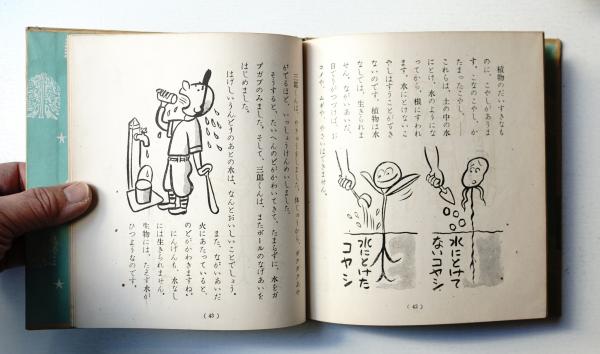 植物のだいすきなも
のに、こやしがありま
す。こなのこやしが、か
たまったこやし――
これらは、土の中の水
にとけ、水のようにな
ってから、根にすわれ
ます。水にとけないこ
やしはすうことができ
ないのです。植物は水
なしでは、生きられま
せん。ながいあいだ、
日でりがつづけば、お
コメや、ムギや、やさいはできません。
水にとけて
ないコヤシ
水にとけた
コヤシ
(42)
三郎くんは、やきゅうをしました。体じゅうから、
がでるほど、いっしょうけんめいしました。
そうすると、たいへんのどがかわいてきて、たまらずに、水をガ
ブガブのみました。そして、三郎くんは、またボールのなげあいを
はじめました。
はげしいうんどうのあとの水は、なんとおいしいことでしょう。
また、ながいあいだ
火にあたっていると、
のどがかわきますね。
にんげんも、水なし
には生きられません。
生物には、たえず水が
ひつようなのです。
(43)